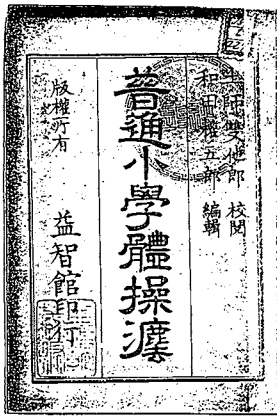 土師雙他郎 校閲
和田權五郎 編輯
普通小學體操灋
版權所有
益智館印行